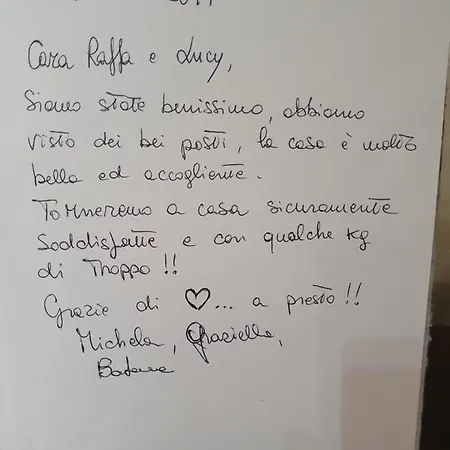 Cara Raffa e Lucy,
Siamo state benissimo, abbiamo
visto dei bei posti, la casa è molto
bella ed accogliente.
Torneremo a casa sicuramente
soddisfatte e con qualche kg
di troppo!!
Grazie di ♡... a presto!!
Michela, Graziella,